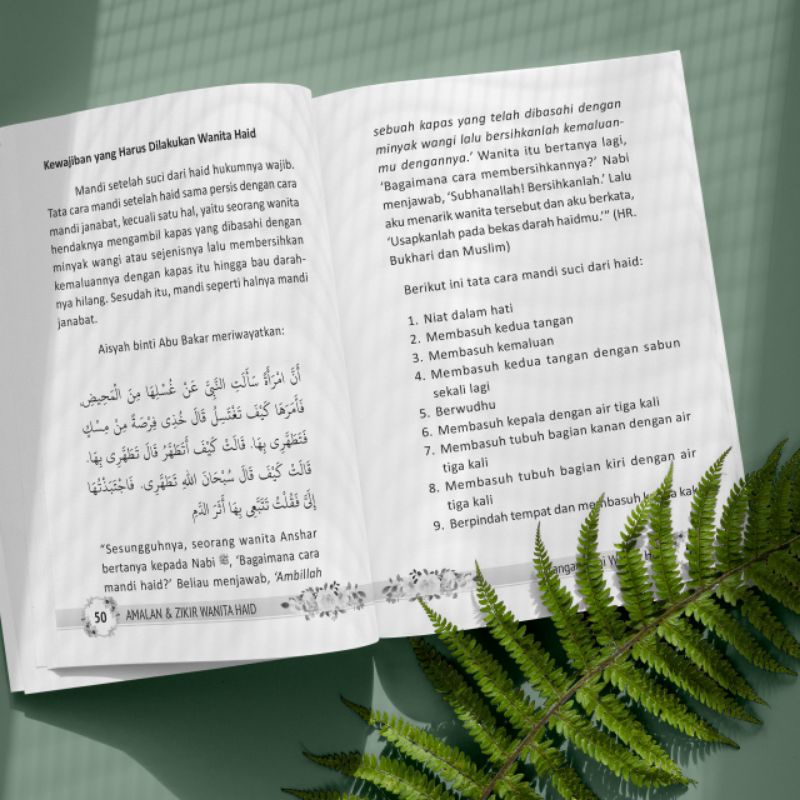 Kewajiban yang Harus Dilakukan Wanita Haid
Mandi setelah suci dari haid hukumnya wajib.
Tata cara mandi setelah haid sama persis dengan cara
mandi janabat, kecuali satu hal, yaitu seorang wanita
hendaknya mengambil kapas yang dibasahi dengan
minyak wangi atau sejenisnya lalu membersihkan
kemaluannya dengan kapas itu hingga bau darah-
nya hilang. Sesudah itu, mandi seperti halnya mandi
janabat.
Aisyah binti Abu Bakar meriwayatkan:
أَنَّ امْرَأَةً سَأَلَتِ النَّبِيَّ عَنْ غُسْلِهَا مِنَ الْمَحِيضِ.
فَأَمَرَهَا كَيْفَ تَغْتَسِلُ قَالَ خُذِى فِرْصَةً مِنْ مِسْكٍ
فَتَطَهَّرِى بِهَا. قَالَتْ كَيْفَ أَتَطَهَّرُ قَالَ تَطَهَّرِى بِهَا.
قَالَتْ كَيْفَ قَالَ سُبْحَانَ اللهِ تَطَهَّرِى. فَاجْتَبَذْتُهَا
إِلَىَّ فَقُلْتُ تَتَبَّعِى بِهَا أَثَرَ الدَّمِ
“Sesungguhnya, seorang wanita Anshar
bertanya kepada Nabi ﷺ, ‘Bagaimana cara
mandi haid?’ Beliau menjawab, ‘Ambillah
50 AMALAN & ZIKIR WANITA HAID
sebuah kapas yang telah dibasahi dengan
minyak wangi lalu bersihkanlah kemaluan-
mu dengannya.’ Wanita itu bertanya lagi,
‘Bagaimana cara membersihkannya?’ Nabi
menjawab, ‘Subhanallah! Bersihkanlah.’ Lalu
aku menarik wanita tersebut dan aku berkata,
‘Usapkanlah pada bekas darah haidmu.’” (HR.
Bukhari dan Muslim)
Berikut ini tata cara mandi suci dari haid:
1. Niat dalam hati
2. Membasuh kedua tangan
3. Membasuh kemaluan
4. Membasuh kedua tangan dengan sabun
sekali lagi
5. Berwudhu
6. Membasuh kepala dengan air tiga kali
7. Membasuh tubuh bagian kanan dengan air
tiga kali
8. Membasuh tubuh bagian kiri dengan air
tiga kali
9. Berpindah tempat dan membasuh